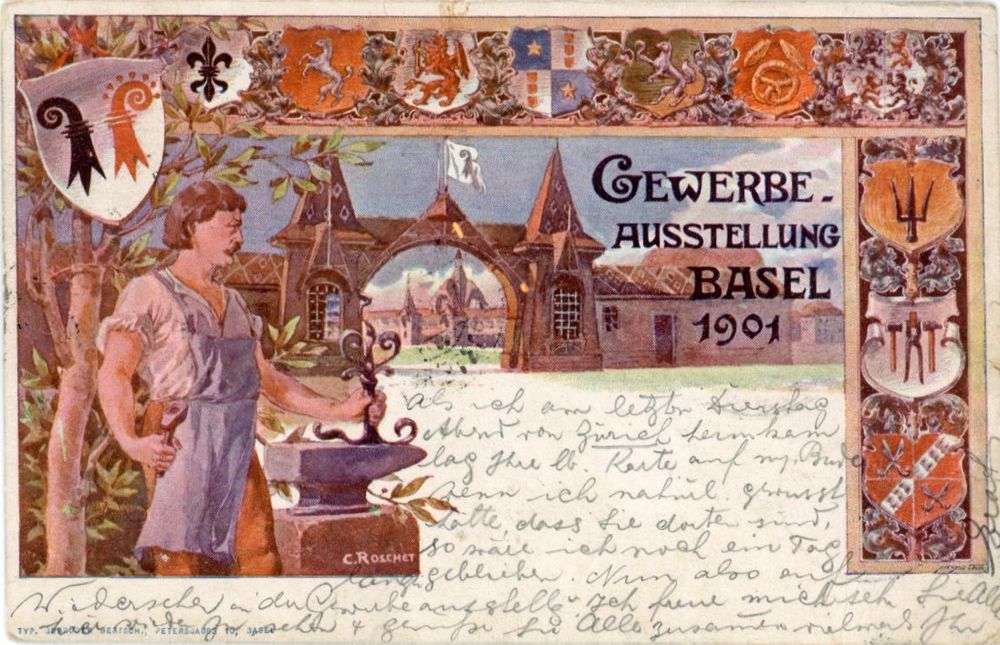 GEWERBE-
AUSSTELLUNG
BASEL
1901
als ich am letzten Dienstag
Abend von Zürich heimkam
lag Ihre lb. Karte auf m. Bude
wenn ich natürl. gewusst
hätte, dass Sie dorten sind,
so wäre ich noch ein Tag
C. ROSCHET
länger geblieben. Nun also auf
Wiedersehen in der Gewerbeausstellg. Ich freue mich sehr Sie Alle
wieder zu sehen & grüsse Sie Alle zusammen vielmals Ihr
TYP. GEBRÜDER BENTSCH, PETERSGASSE 10, BASEL